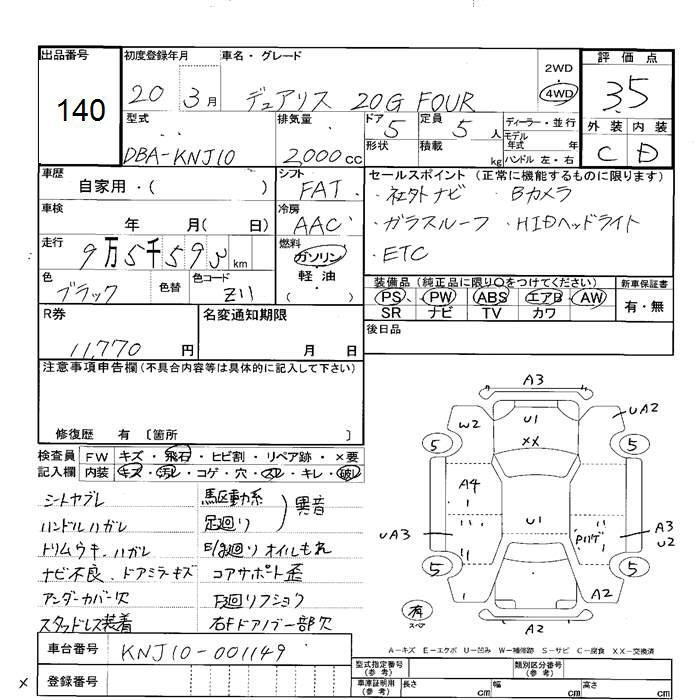 出品番号
140
初度登録年月
20 3月
車名・グレード
デュアリス 20G FOUR
2WD
4WD
評価点
3.5
外装 内装
C D
型式
DBA-KNJ10
排気量
2,000cc
ドア 5
形状
定員 5 人
積載 kg
ディーラー・並行
モデル年式 年
ハンドル 左・右
車歴
自家用・( )
シフト
FAT
車検
年 月( 日)
冷房
AAC
走行
9万5千593km
燃料
ガソリン
軽油
( )
色
ブラック
色替
色コード
Z11
セールスポイント (正常に機能するものに限ります)
・社外ナビ ・Bカメラ
・ガラスルーフ ・HIDヘッドライト
・ETC
装備品 (純正品に限り○をつけてください)
PS PW ABS エアB AW
SR ナビ TV カワ
新車保証書
有・無
後日品
R券
11,770 円
名変通知期限
月 日
注意事項申告欄(不具合内容等は具体的に記入して下さい)
修復歴 有 〔箇所 〕
検査員 FW キズ・飛石・ヒビ割・リペア跡・×要
記入欄 内装 キズ・汚レ・コゲ・穴・スレ・キレ・破レ
シートヤブレ
ハンドルハガレ
ドリムウキ、ハガレ
ナビ不良、ドアミラーキズ
アンダーカバー欠
スタッドレス装着
馬区動系
足廻り
異音
E/g廻りオイルもれ
コアサポート歪
下廻りフショク
右Fドアノブ一部欠
A3
W2
U1
XX
UA2
5
5
A4
UA3
U1
Pハゲ
A3
U2
5
5
A2
A2
有
スペア
A-キズ E-エクボ U-凹み W-補修跡 S-サビ C-腐食 XX-交換済
車台番号
KNJ10-001149
× 登録番号
型式指定番号
(参考)
類別区分番号
(参考)
車庫証明用
(参考)
長さ cm
幅 cm
高さ cm